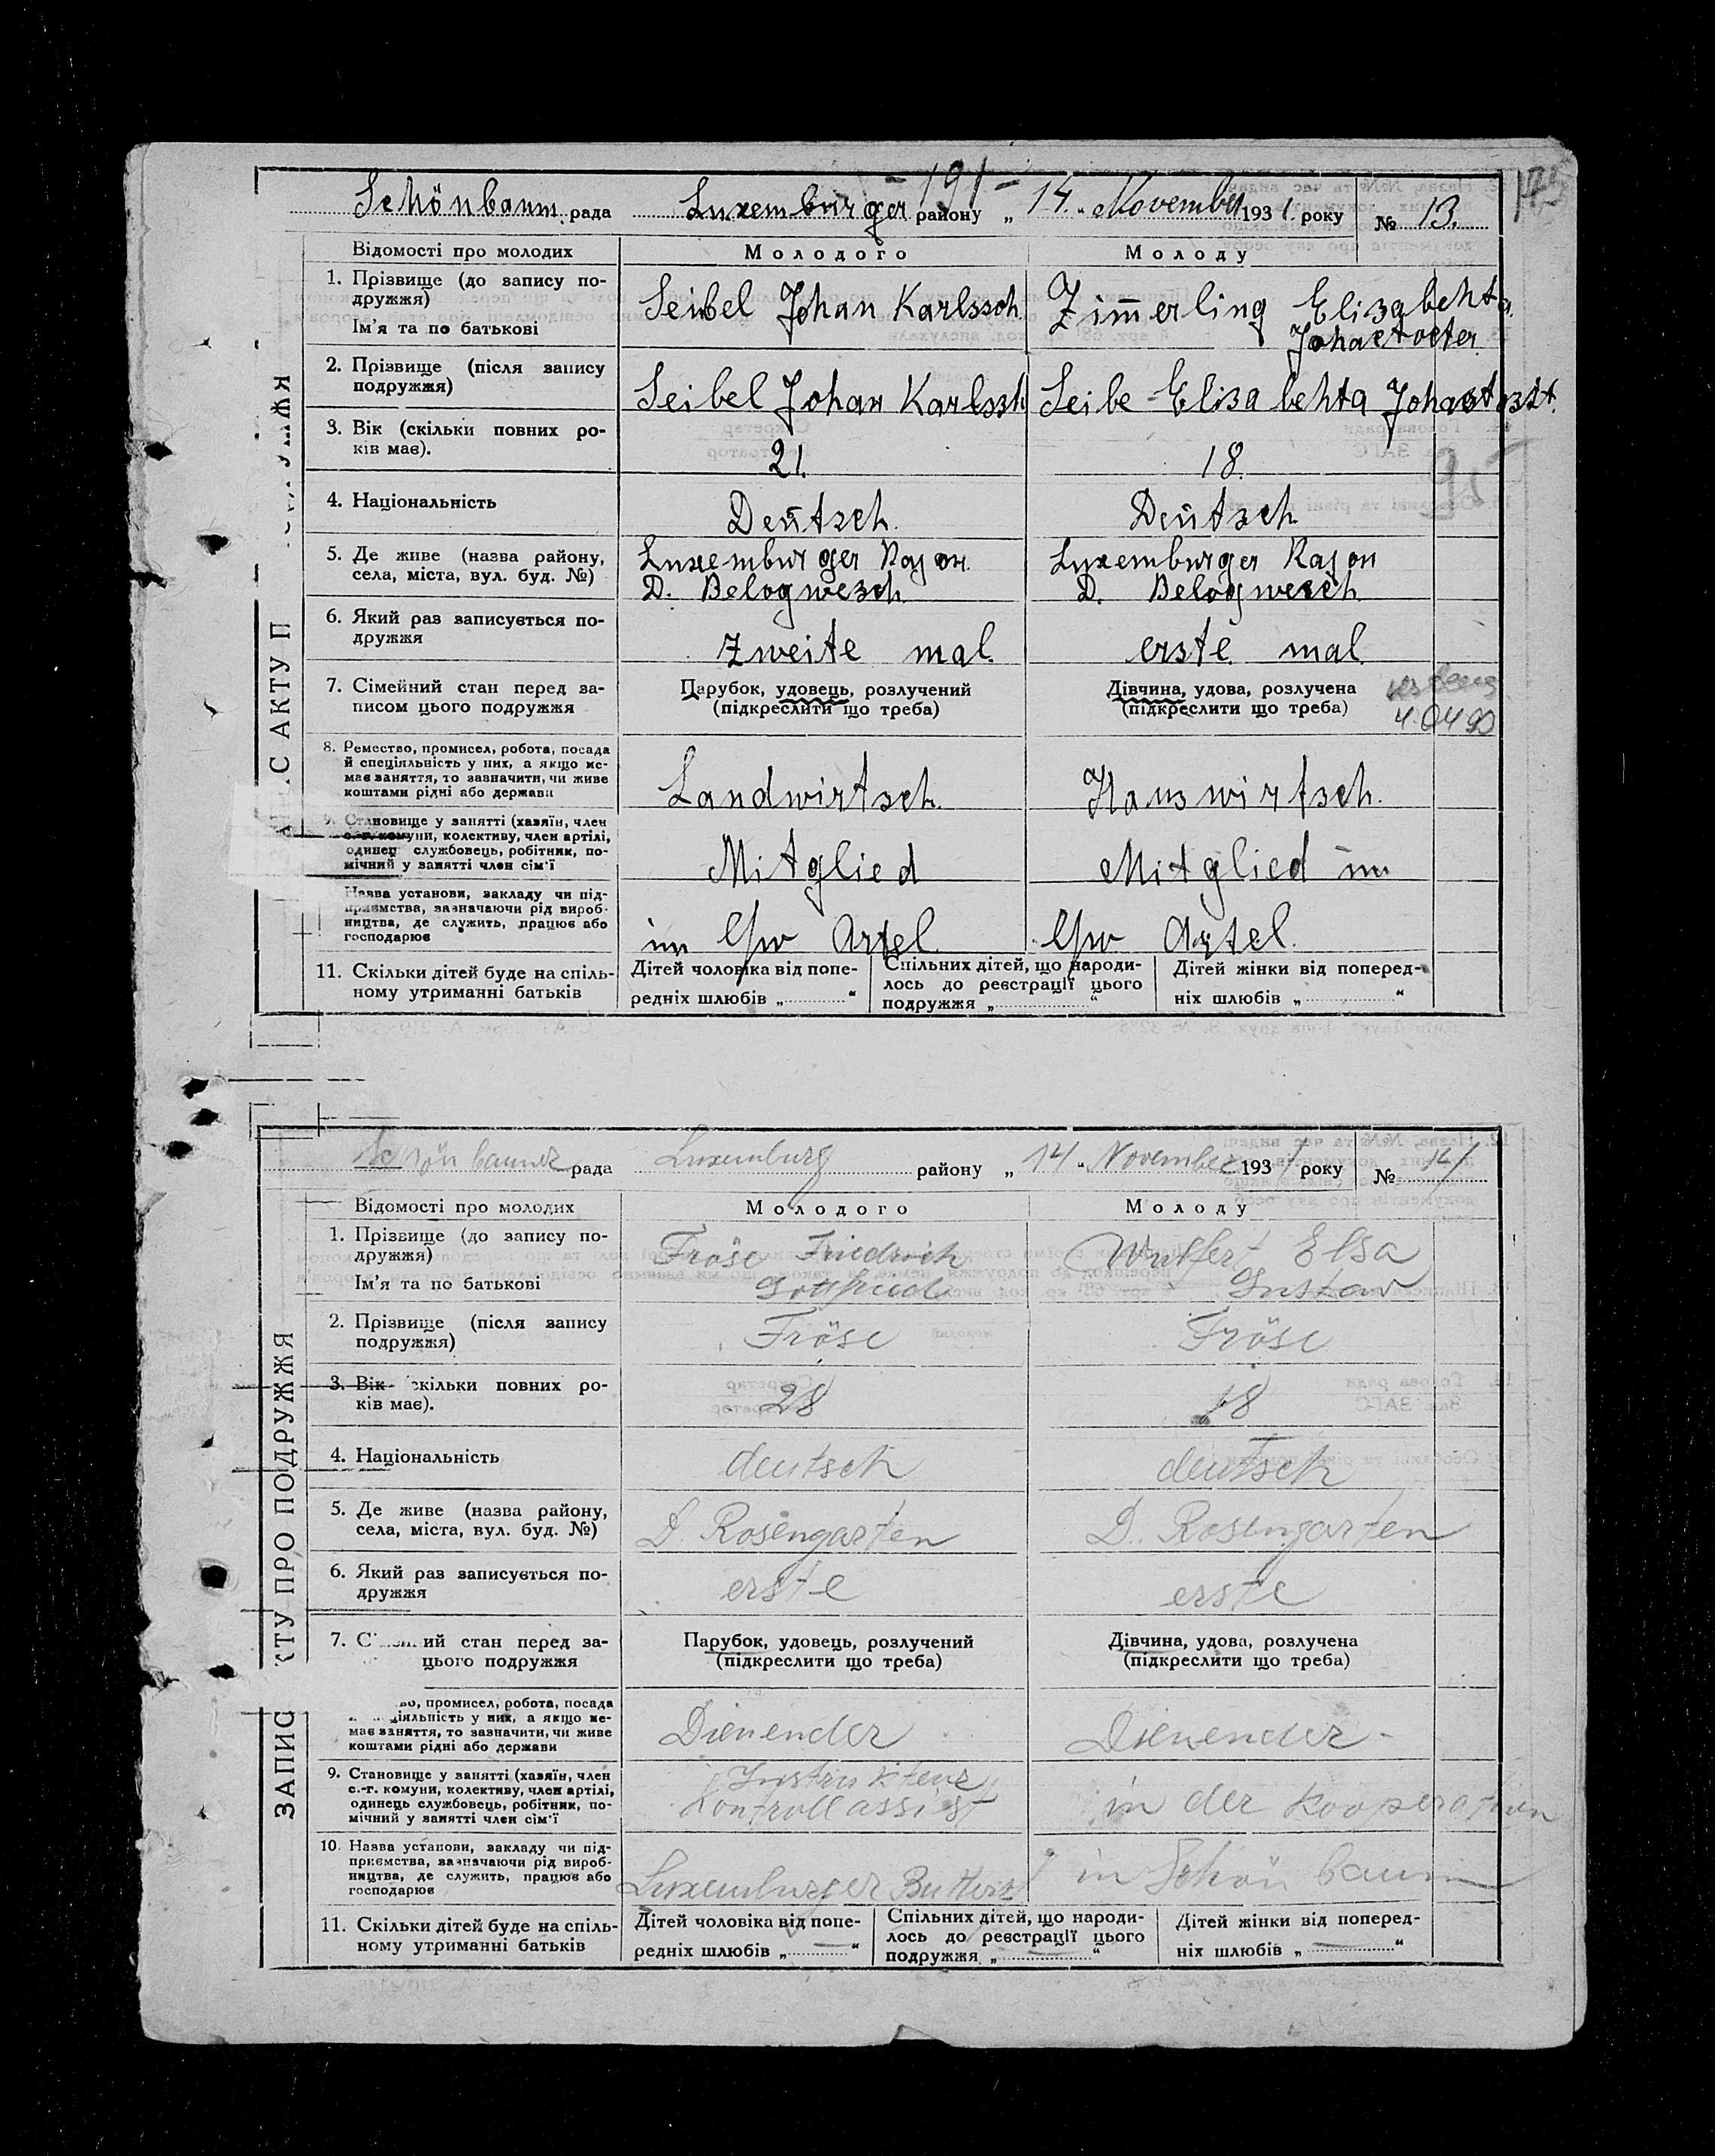 - 191 -
Schönbaum рада Luxemburger району „ 14 " November 1931 року № 13.
Відомості про молодих Молодого Молоду
1. Прізвище (до запису по-
дружжя)
Ім'я та по батькові
Seibel Johan Karlssoh
Zim̅erling Elisabehta
2. Прізвище (після запису
подружжя)
Seibel Johan Karlssh
Seibe Elisabehta
3. Вік (скільки повних ро-
ків має).
21.
18.
4. Національність
Deutsch.
Deutsch
5. Де живе (назва району,
села, міста, вул. буд. №)
Luxemburger Rayon.
D. Belogwesch.
Luxemburger Rayon
D. Belogwesch
6. Який раз записується по-
дружжя
zweite mal.
erste mal
7. Сімейний стан перед за-
писом цього подружжя
Парубок, удовець, розлучений
(підкреслити що треба)
Дівчина, удова, розлучена
(підкреслити що треба)
4.04.90
8. Ремество, промисел, робота, посада
й спеціяльність у них, а якщо не-
має заняття, то зазначити, чи живе
коштами рідні або держави
Landwirtsch.
Hauswirtsch.
9. Становище у занятті (хазяїн, член
с.-г. комуни, колективу, член артілі,
одинец службовець, робітник, по-
мічний у занятті член сім'ї
Mitglied
Mitglied im
Назва установи, закладу чи під-
приємства, зазначаючи рід вироб-
ництва, де служить, працює або
господарює
im Artel
Artel.
11. Скільки дітей буде на спіль-
ному утриманні батьків
Дітей чоловіка від попе-
редніх шлюбів „ “
Спільних дітей, що народи-
лось до реєстрації цього
подружжя „ “
Дітей жінки від поперед-
ніх шлюбів „ “
рада Luxemburg району „ 14 " November 1931 року № 14
Відомості про молодих Молодого Молоду
1. Прізвище (до запису по-
дружжя)
Ім'я та по батькові
Fröse Friedrich
Gottfried
Wulfert Elsa
Gustav
2. Прізвище (після запису
подружжя)
Fröse
Fröse
3. Вік скільки повних ро-
ків має).
28
18
4. Національність
deutsch
deutsch
5. Де живе (назва району,
села, міста, вул. буд. №)
D. Rosengarten
D. Rosengarten
6. Який раз записується по-
дружжя
erste
erste
7. ий стан перед за-
цього подружжя
Парубок, удовець, розлучений
(підкреслити що треба)
Дівчина, удова, розлучена
(підкреслити що треба)
во, промисел, робота, посада
іяльність у них, а якщо не-
має заняття, то зазначити, чи живе
коштами рідні або держави
Dienender
Dienender -
9. Становище у занятті (хазяїн, член
с.-г. комуни, колективу, член артілі,
одинець службовець, робітник, по-
мічний у занятті член сім'ї
Instrukteur
Kontrollassist
in der
10. Назва установи, закладу чи під-
приємства, зазначаючи рід вироб-
ництва, де служить, працює або
господарює
Luxemburger
in Schönbaum
11. Скільки дітей буде на спіль-
ному утриманні батьків
Дітей чоловіка від попе-
редніх шлюбів „ — “
Спільних дітей, що народи-
лось до реєстрації цього
подружжя „ — “
Дітей жінки від поперед-
ніх шлюбів „ — “
ЗАПИС КТУ ПРО ПОДРУЖЖЯ